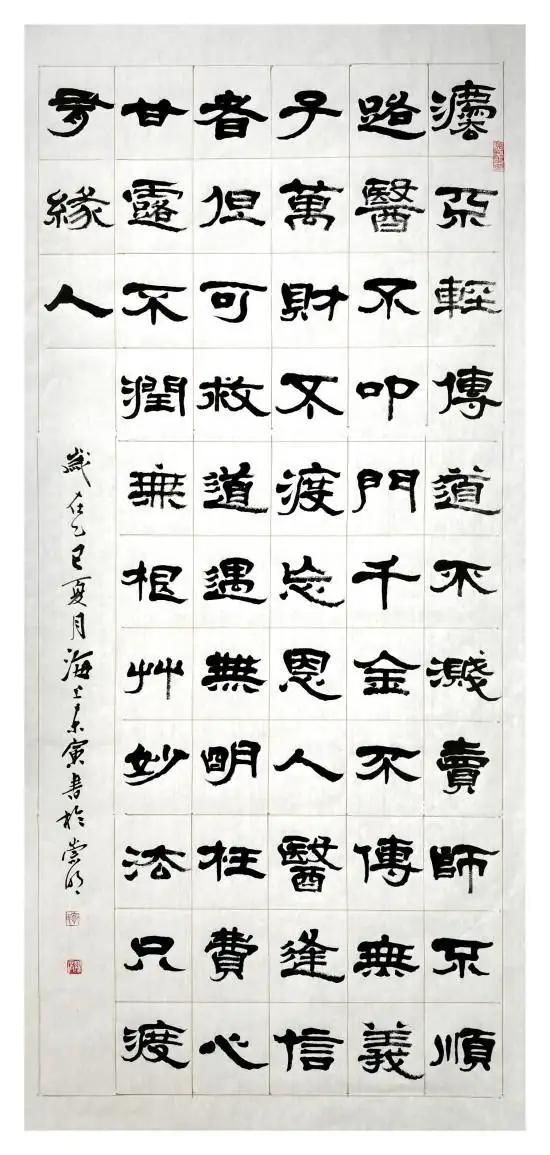 灋不輕傳道不濺賣師不順
路醫不叩門千金不傳無義
子萬財不渡忘恩人醫逢信
者但可救道遇無明枉費心
甘露不潤無根艸妙法只渡
有緣人
歲在乙巳夏月海上寅書於崇明